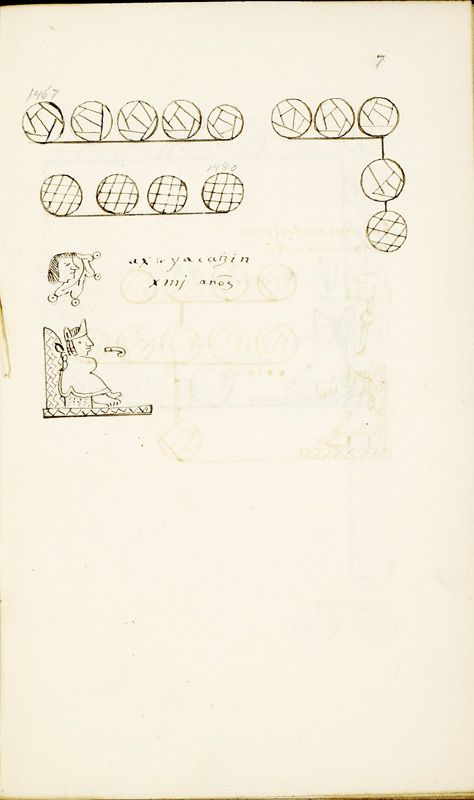 7
1467
1480
axayacatzin
xmj años